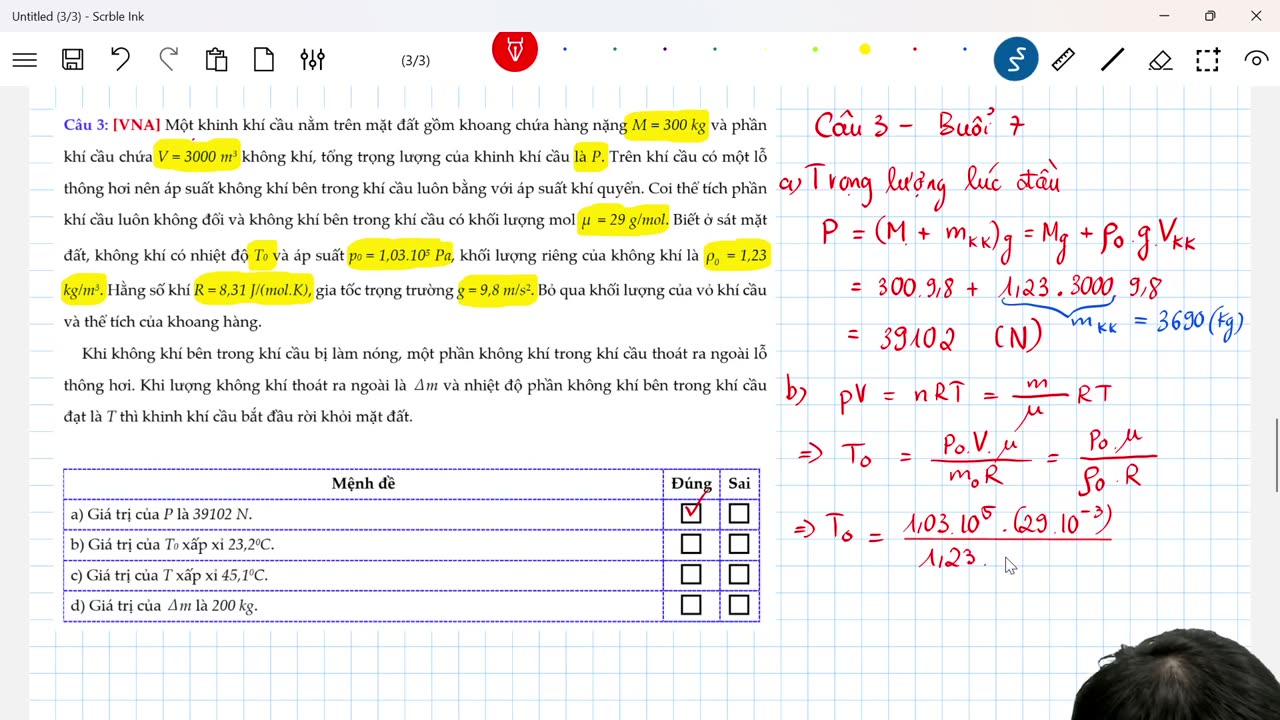 Untitled (3/3) - Scrble Ink
(3/3)
Câu 3: [VNA] Một khinh khí cầu nằm trên mặt đất gồm khoang chứa hàng nặng M = 300 kg và phần
khí cầu chứa V = 3000 m³ không khí, tổng trọng lượng của khinh khí cầu là P. Trên khí cầu có một lỗ
thông hơi nên áp suất không khí bên trong khí cầu luôn bằng với áp suất khí quyển. Coi thể tích phần
khí cầu luôn không đổi và không khí bên trong khí cầu có khối lượng mol μ = 29 g/mol. Biết ở sát mặt
đất, không khí có nhiệt độ T₀ và áp suất p₀ = 1,03.10⁵ Pa, khối lượng riêng của không khí là ρ₀ = 1,23
kg/m³. Hằng số khí R = 8,31 J/(mol.K), gia tốc trọng trường g = 9,8 m/s². Bỏ qua khối lượng của vỏ khí cầu
và thể tích của khoang hàng.
Khi không khí bên trong khí cầu bị làm nóng, một phần không khí trong khí cầu thoát ra ngoài lỗ
thông hơi. Khi lượng không khí thoát ra ngoài là Δm và nhiệt độ phần không khí bên trong khí cầu
đạt là T thì khinh khí cầu bắt đầu rời khỏi mặt đất.
Mệnh đề Đúng Sai
a) Giá trị của P là 39102 N.
b) Giá trị của T₀ xấp xỉ 23,2⁰C.
c) Giá trị của T xấp xỉ 45,1⁰C.
d) Giá trị của Δm là 200 kg.
Câu 3 - Buổi 7
a) Trọng lượng lúc đầu
P = (M + m_KK)g = Mg + ρ₀.g.V_KK
= 300.9,8 + 1,23.3000.9,8
m_KK = 3690 (kg)
= 39102 (N)
b) pV = nRT = m/μ RT
=> T₀ = p₀.V.μ / m₀R = p₀.μ / ρ₀.R
=> T₀ = 1,03.10⁵.(29.10⁻³) / 1,23.